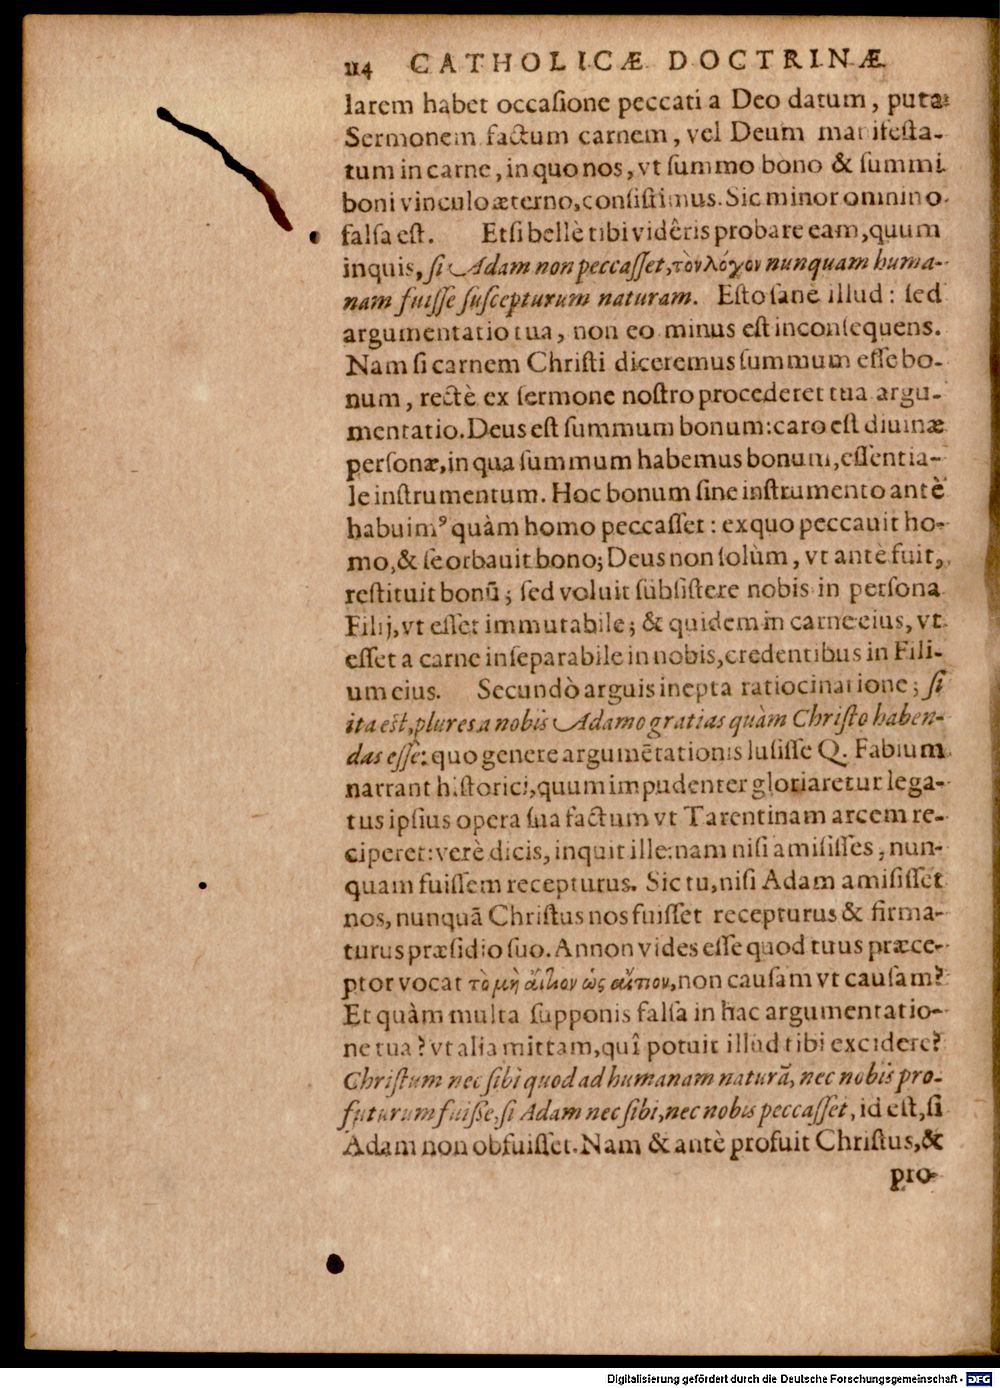 114 CATHOLICÆ DOCTRINÆ
larem habet occasione peccati a Deo datum, puta:
Sermonem factum carnem, vel Deum manifesta-
tum in carne, in quo nos, vt summo bono & summi
boni vinculo æterno, consistimus. Sic minor omnino
falsa est. Etsi bellè tibi vidêris probare eam, quum
inquis, si Adam non peccasset, τὸν λόγον nunquam huma-
nam fuisse suscepturum naturam. Esto sanè illud: sed
argumentatio tua, non eo minus est inconsequens.
Nam si carnem Christi diceremus summum esse bo-
num, rectè ex sermone nostro procederet tua argu-
mentatio. Deus est summum bonum: caro est diuinæ
personæ, in qua summum habemus bonum, essentia-
le instrumentum. Hoc bonum sine instrumento antè
habuimꝰ quàm homo peccasset: ex quo peccauit ho-
mo, & se orbauit bono; Deus non solùm, vt antè fuit,
restituit bonũ; sed voluit subsistere nobis in persona
Filij, vt esset immutabile; & quidem in carne eius, vt
esset a carne inseparabile in nobis, credentibus in Fili-
um eius. Secundò arguis inepta ratiocinatione; si
ita est, plures a nobis Adamo gratias quàm Christo haben-
das esse: quo genere argumẽtationis lusisse Q. Fabium
narrant historici, quum impudenter gloriaretur lega-
tus ipsius opera sua factum vt Tarentinam arcem re-
ciperet: verè dicis, inquit ille: nam nisi amisisses, nun-
quam fuissem recepturus. Sic tu, nisi Adam amisisset
nos, nunquã Christus nos fuisset recepturus & firma-
turus præsidio suo. Annon vides esse quod tuus præce-
ptor vocat τὸ μὴ αἴτιον ὡς αἴτιον, non causam vt causam?
Et quàm multa supponis falsa in hac argumentatio-
ne tua? vt alia mittam, quî potuit illud tibi excidere?
Christum nec sibi quod ad humanam naturã, nec nobis pro-
futurum fuisse, si Adam nec sibi, nec nobis peccasset, id est, si
Adam non obfuisset. Nam & antè profuit Christus, &
pro-
Digitalisierung gefördert durch die Deutsche Forschungsgemeinschaft - DFG